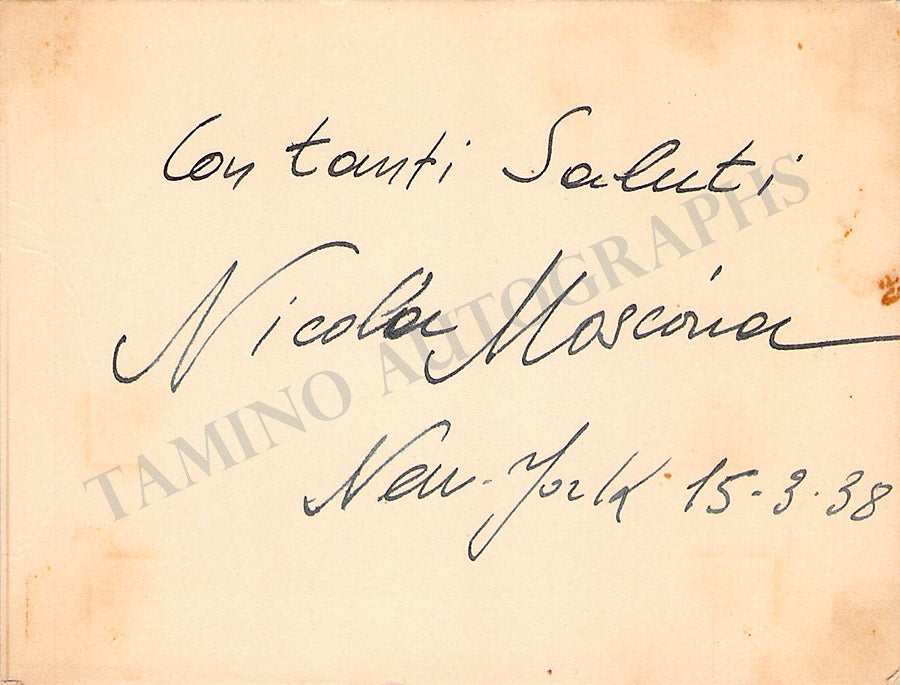 Con tanti Saluti
Nicola Moscona
New-York 15-3-38
TAMINO AUTOGRAPHS